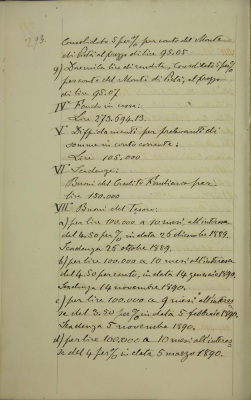 293.
Consolidato 5 per % per conto del Monte
di Pietà, al prezzo di lire 95.05
g) Duemila lire di rendita, Consolidato 5 per %
per conto del Monte di Pietà, al prezzo
di lire 95.07
IV Fondo in cassa:
Lire 273.694.13.
V Diffidamenti per prelevanti di
somme in conto corrente:
Lire 105.000
VI Scadenze:
Buoni del Credito Fondiario per
lire 150.000
VII Buoni del Tesoro:
a) per lire 100.000 a 10 mesi all'interesse
del 4.50 per % in data 26 dicembre 1889.
Scadenza 26 ottobre 1889.
b) per lire 100.000 a 10 mesi all'interesse
del 4.50 per cento, in data 14 gennaio 1890.
Scadenza 14 novembre 1890.
c) per lire 100.000 a 9 mesi all'interes
se del 3.50 per % in data 5 febbraio 1890.
Scadenza 5 novembre 1890.
d) per lire 100.000 a 10 mesi all'interes
se del 4 per % in data 5 marzo 1890.